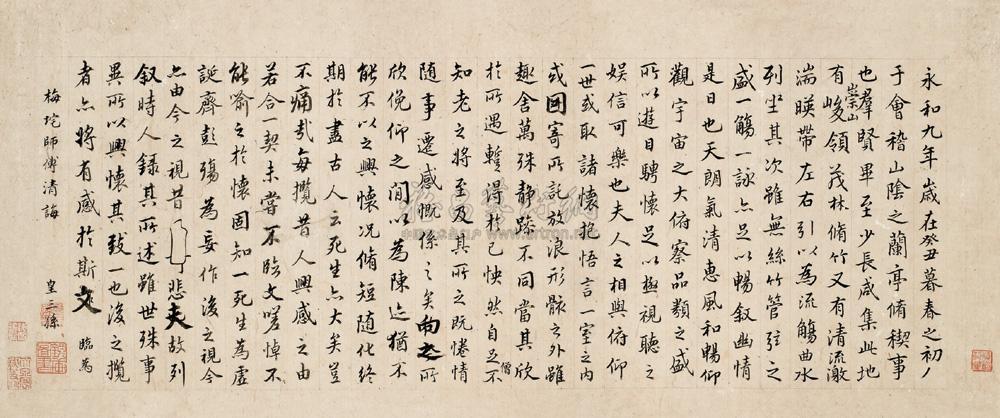 永和九年歲在癸丑暮春之初
于會稽山陰之蘭亭脩稧事
也羣賢畢至少長咸集此地
有崇山峻領茂林脩竹又有清流激
湍暎帶左右引以為流觴曲水
列坐其次雖無絲竹管弦之
盛一觴一詠亦足以暢敘幽情
是日也天朗氣清惠風和暢仰
觀宇宙之大俯察品類之盛
所以遊目騁懷足以極視聽之
娛信可樂也夫人之相與俯仰
一世或取諸懷抱悟言一室之內
或因寄所託放浪形骸之外雖
趣舍萬殊靜躁不同當其欣
於所遇蹔得於己怏然自足不
知老之將至及其所之既惓情
隨事遷感慨係之矣向之所
欣俛仰之間以為陳迹猶不
能不以之興懷況脩短隨化終
期於盡古人云死生亦大矣豈
不痛哉每攬昔人興感之由
若合一契未嘗不臨文嗟悼不
能喻之於懷固知一死生為虛
誕齊彭殤為妄作後之視今
亦由今之視昔悲夫故列
敘時人錄其所述雖世殊事
異所以興懷其致一也後之攬
者亦將有感於斯文
皇三孫 臨為
梅垞師傅清誨